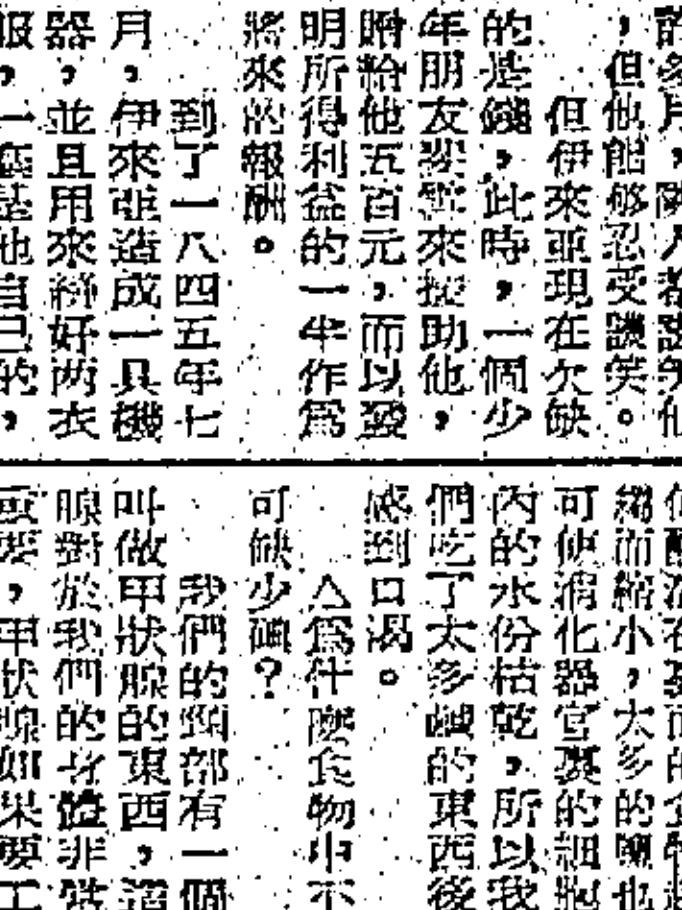 許多月，隣人都譏笑他
，但他能够忍受譏笑。
但伊來亜現在欠缺
的是錢，此時，一個少
年朋友 來 助他，
贈給他五百元，而以發
明所得利益的一半作爲
將來的報酬。
到了一八四五年七
月，伊來亜造成一具機
器，並且用來縫好两衣
服，一 是他自己的，
縮而縮小，太多的鹽也
可使消化器官裏的細胞
內的水份枯乾，所以我
們吃了太多鹹的東西後
感到口渴。
△爲什麽食物中不
可缺少碘？
我們的頸部有一個
叫做甲狀腺的東西，這
腺對於我們的身體非常
重要，甲狀腺如果要工